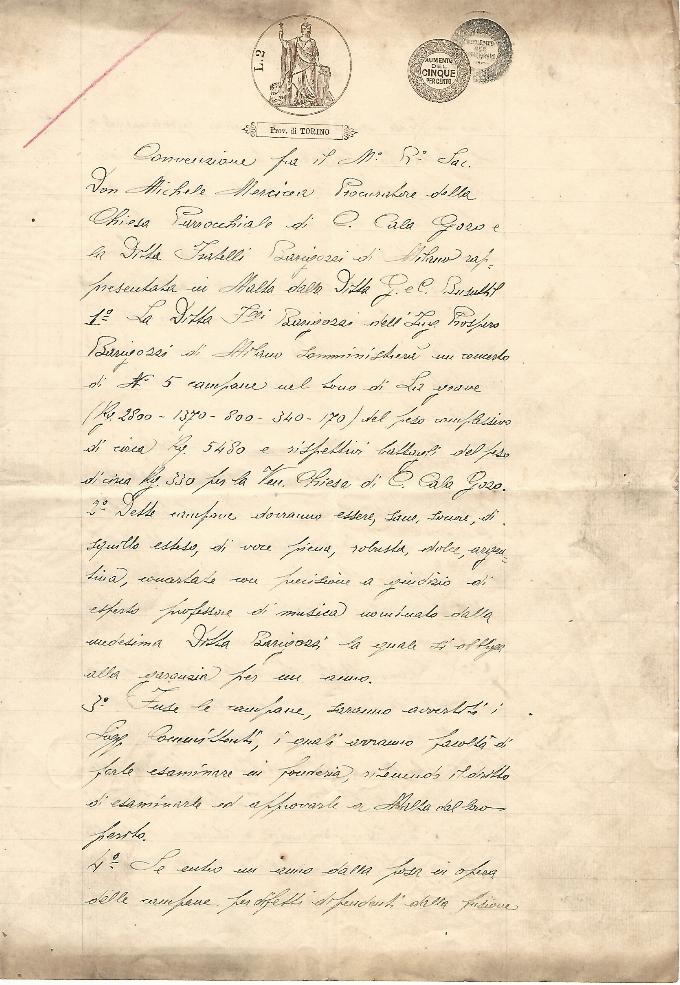 L.2
AUMENTO
DEL
CINQUE
PER CENTO
Prov. di TORINO
Convenzione fra il M.º R.º Sac.
Don Michele Mercieca Procuratore della
Chiesa Parrocchiale di C. Cala Gozo e
la Ditta Fratelli Barigozzi di Milano rap-
presentata in Malta dalla Ditta G. e C. Busuttil
1º La Ditta F.lli Barigozzi dell'Ing. Prospero
Barigozzi di Milano somministrerà un concerto
di Nº 5 campane nel tono di La grave
(Kg. 2800 - 1370 - 800 - 340 - 170) del peso complessivo
di circa Kg. 5480 e rispettivi battagli del peso
di circa Kg. 330 per la Ven. Chiesa di C. Cala Gozo.
2º Dette campane dovranno essere, sane, sonore, di
squillo esteso, di voce piena, robusta, dolce, argen-
tina, concertate con precisione a giudizio di
esperto professore di musica nominato dalla
medesima Ditta Barigozzi la quale si obbliga
alla garanzia per un anno.
3º Fuse le campane, saranno avvertiti i
Sigg. Committenti, i quali avranno facoltà di
farle esaminare in fonderia, ritenendo il diritto
di esaminarle ed approvarle a Malta dal loro
perito.
4º Se entro un anno dalla posa in opera
delle campane per difetti dipendenti dalla fusione